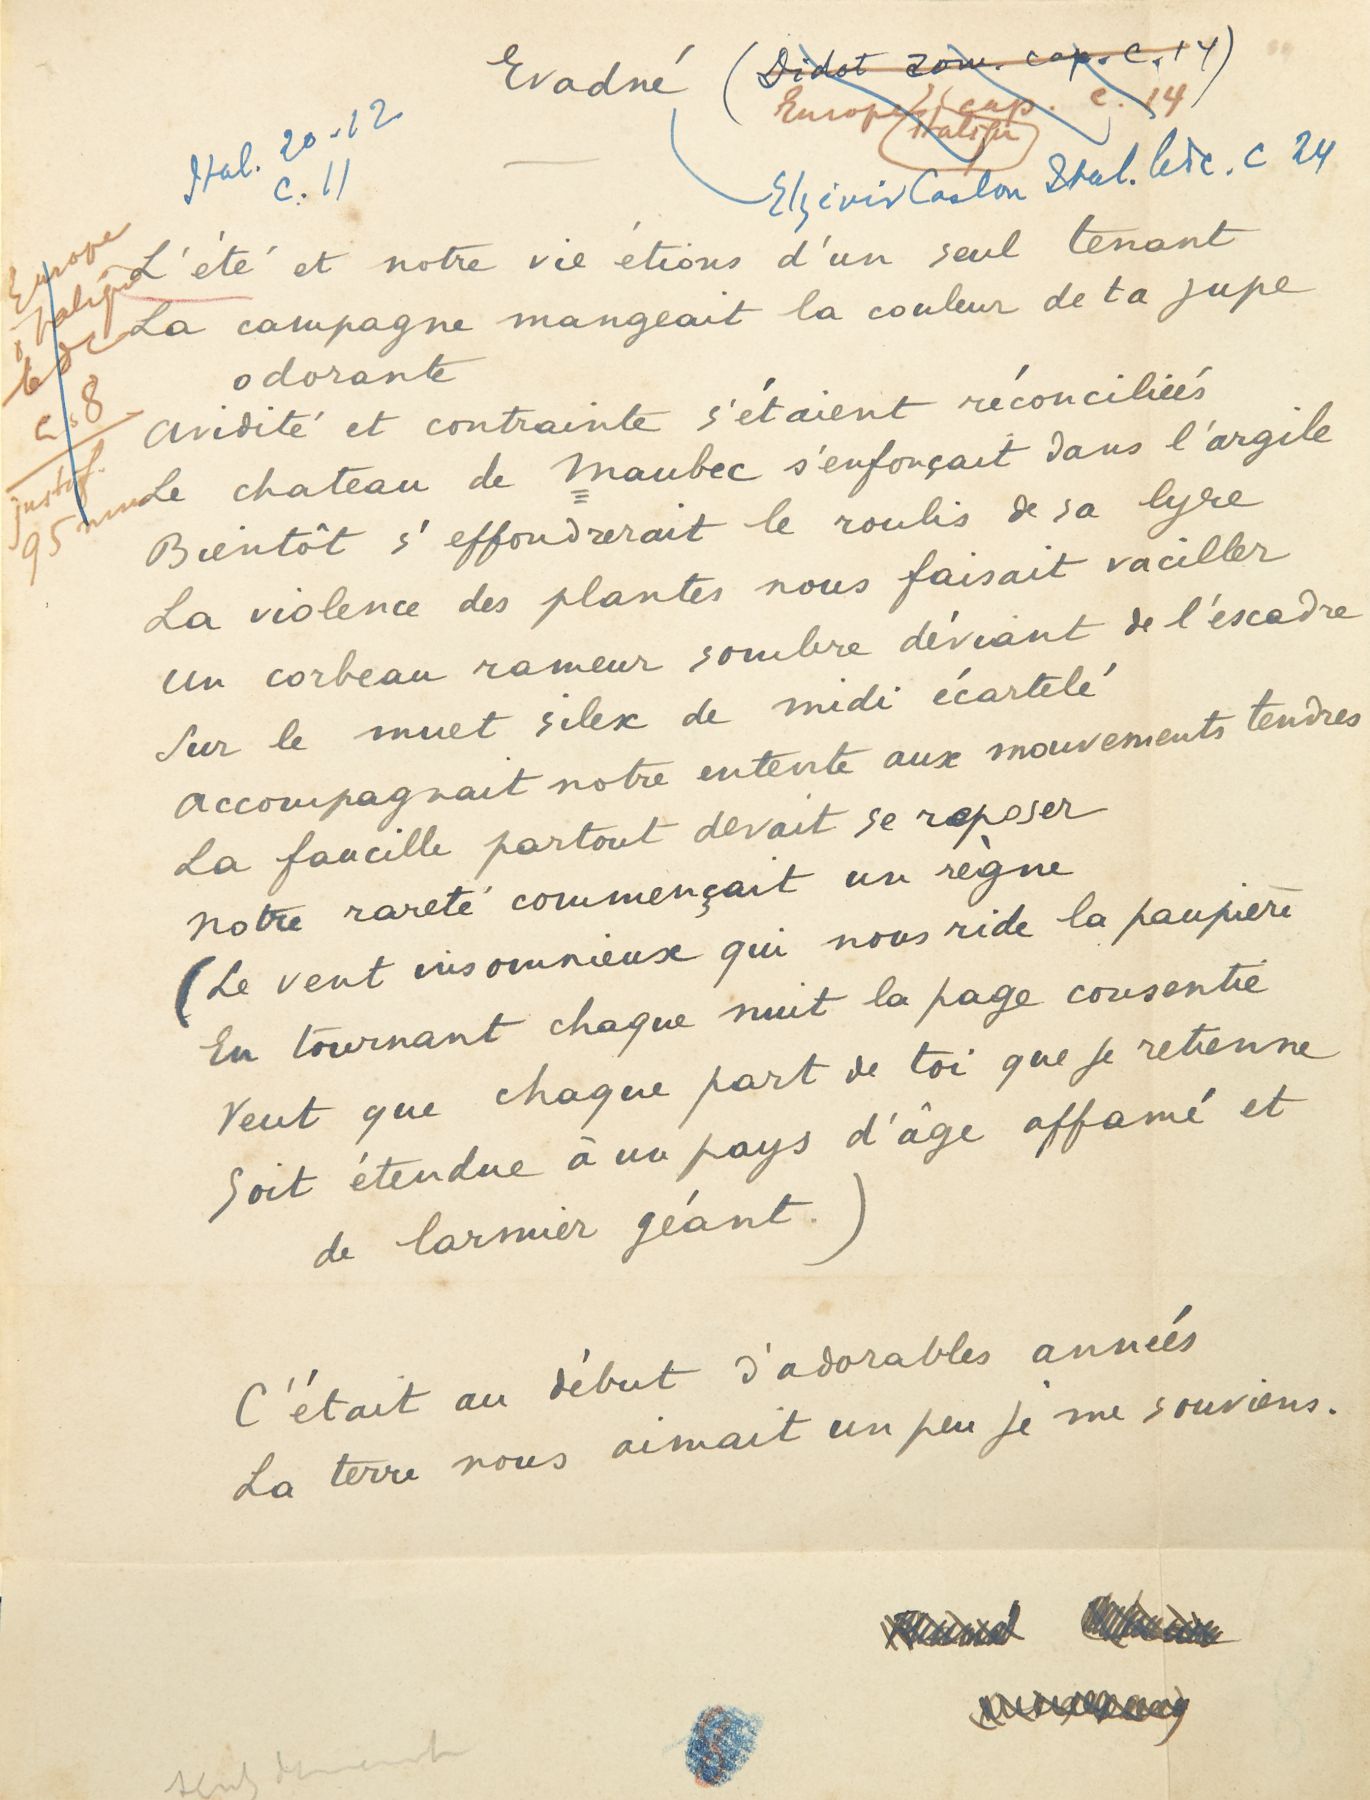 Evadné (Didot rom. cap. c. 14)
Europe cap. c. 14
italique
Ital. 20-12
c. 11
Elzévir Caslon Ital. bdc. c 24
Europe
italique
bdc
c. 8
justif.
95 mm
L'été et notre vie étions d'un seul tenant
La campagne mangeait la couleur de ta jupe
odorante
Avidité et contrainte s'étaient réconciliés
Le chateau de Maubec s'enfonçait dans l'argile
Bientôt s'effondrerait le roulis de sa lyre
La violence des plantes nous faisait vaciller
Un corbeau rameur sombre déviant de l'escadre
Sur le muet silex de midi écartelé
Accompagnait notre entente aux mouvements tendres
La faucille partout devait se reposer
Notre rareté commençait un règne
(Le vent insomnieux qui nous ride la paupière
En tournant chaque nuit la page consentie
Veut que chaque part de toi que je retienne
Soit étendue à un pays d'âge affamé et
de larmier géant.)
C'était au début d'adorables années
La terre nous aimait un peu je me souviens.